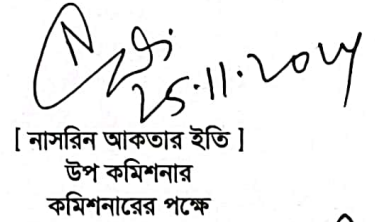 25.11.2024
[ নাসরিন আকতার ইতি ]
উপ কমিশনার
কমিশনারের পক্ষে